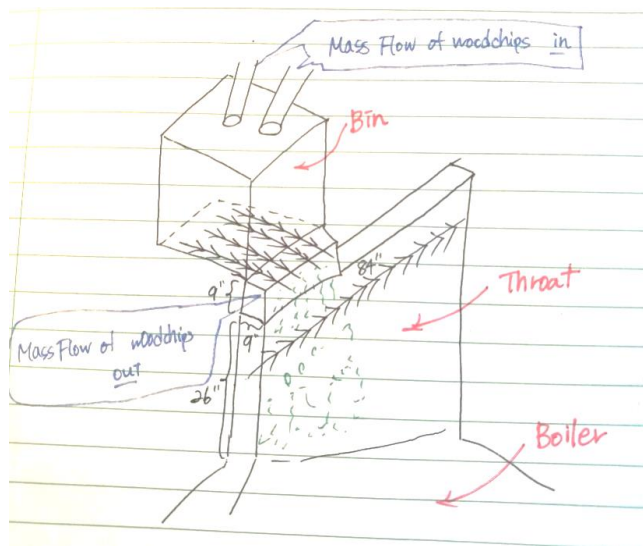 Mass Flow of woodchips in
Bin
84"
9"
Throat
Mass Flow of woodchips
out
9"
26"
Boiler